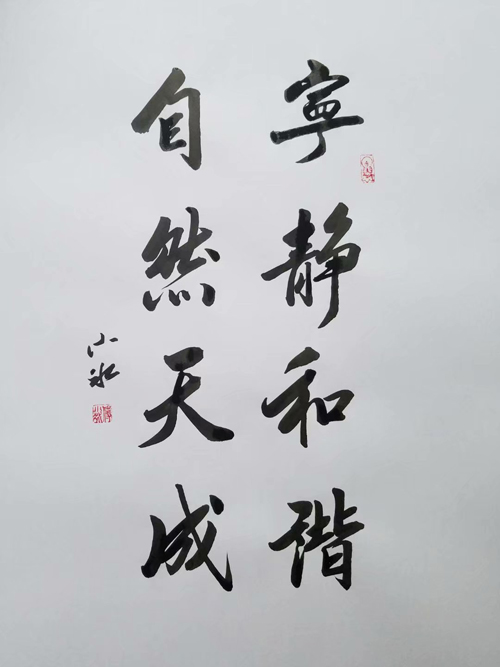 寧静和谐
自然天成
小冰